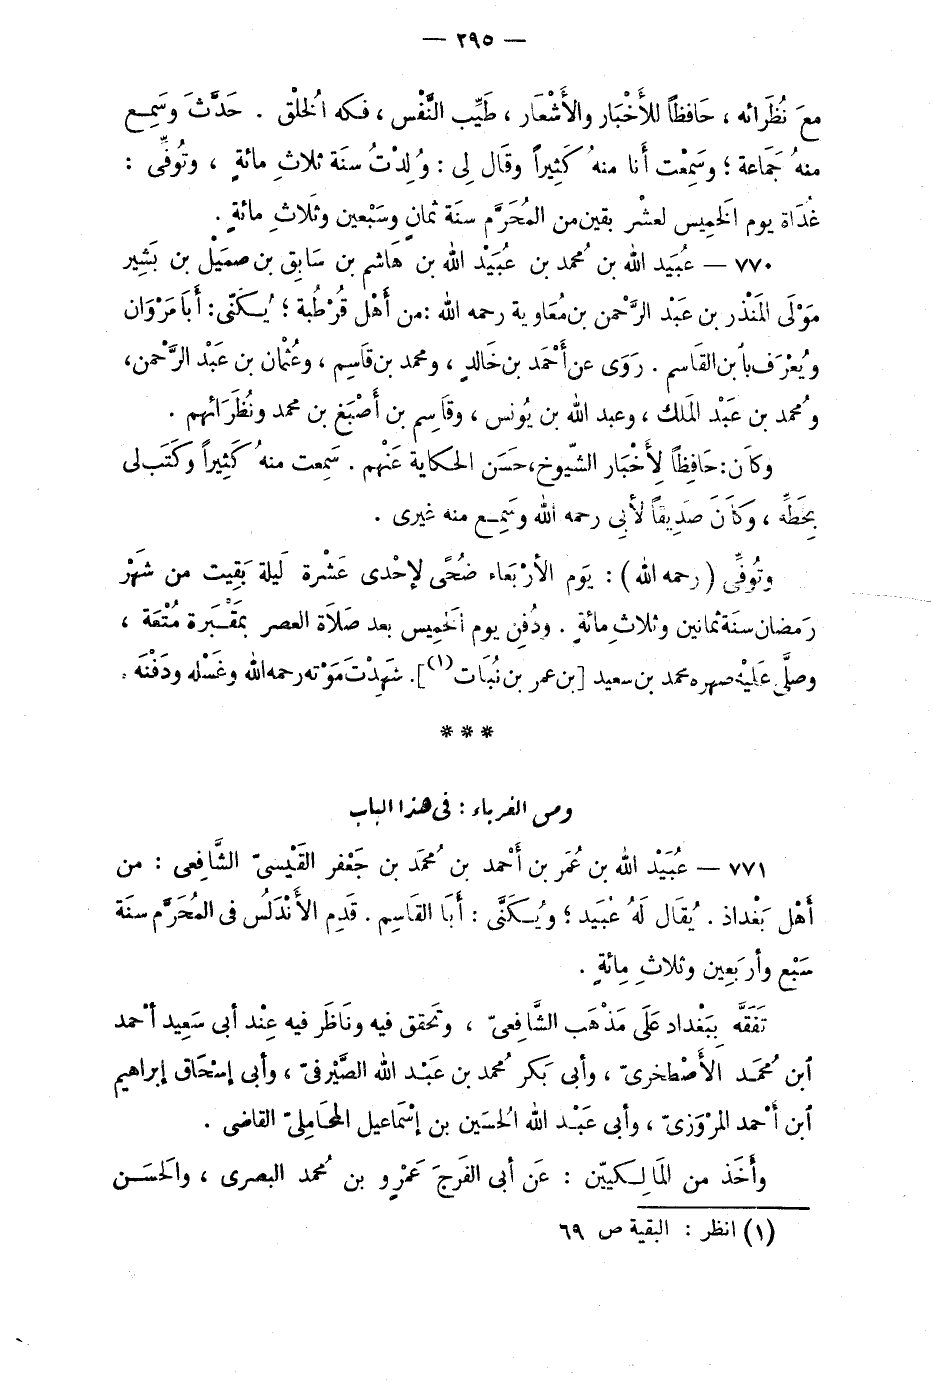 — ٢٩٥ —
معَ نُظَرائه ، حَافظاً للأَخْبَار والأَشْعَار ، طَيِّب النَّفْس ، فـكه الْخلْق . حَدَّثَ وسَمِـع
منهُ جَمَاعة ؛ وسَمِعْت أنا منهُ كَثِيراً وقَال لِى : وُلِدْتُ سنَة ثلاثِ مائةٍ ، وتُوفِّى :
غُدَاة يوم الَخمِيس لعشْر بقين من المُحَرَّم سنَة ثمَانٍ وسَبْعين وثَلَاثِ مائةٍ .
٧٧٠ — عُبَيد الله بن مُحمد بن عبَيْد الله بن هَاشم بن سَابق بن صمَيْل بن بَشِير
مَوْلَى المَنْذر بن عَبْد الرَّحْمن بن مُعَاوية رحمه الله : من أَهْل قُرْطُبة ؛ يُـكَنَّى : أبَا مَرْوَان
ويُعْرَف بأبن القَاسم . رَوَى عن أَحْمَد بن خَالدٍ ، ومحمد بن قَاسِم ، وعُثْمان بن عَبْد الرَّحْمن،
ومُحمد بن عَبْد المَلك ، وعبد الله بن يُونس ، وقَاسِم بن أصْبَغ بن محمد ونُظَرَائهم .
وكاَن : حَافِظاً لِأَخْبَار الشّيوخ، حَسَن الحـكاية عَنْهم . سَمِعت منهُ كَثِيراً وكَتَب لى
بِخَطِّه ، وكَاَنَ صَدِيقاً لأبى رحمه الله وسَمِـع منه غيرى .
وتُوفِّى ( رحمه الله ) : يَوم الأرْبَعاء ضُحًى لإحْدى عَشْرة لَيلة بَقِيت من شَهْر
رَمضان سنَة ثمانين وثلاثِ مائةٍ . ودُفن يوم اَلخمِيس بعد صَلَاة العصر بمَقْـبَرة مُتْعَة ،
وصلَّى عَليْه صهره محمد بن سعيد [ بن عمر بن نُبَات (١) ] . شهِدْتَ مَوْته رحمه الله وغَسْله ودَفْنَه .
* * *
ومن الغرباء : فى هذا الباب
٧٧١ — عُبَيْد الله بن عُمَر بن أَحْمد بن مُحمَد بن جَعْفر القَيْسىّ الشَّافِعى : من
أَهْل بَغْداذ . يُقال لَهُ عبَيد ؛ ويُـكَنَّى : أَبَا القَاسِم . قَدِم الأَنْدَلُس فى المُحَرَّم سنَة
سَبْع وأرَبَعِين وثلاثِ مِائةٍ .
تَفَقَّه بِبَغْداد عَلَى مَذْهَب الشَّافِعىّ ، وتَحقق فيه ونَاظَر فيه عِنْد أبى سَعِيد أحْمد
ابن مُحمَـد الأَصْطَخرىّ ، وأبى بَكر مُحمد بن عَبْـد الله الصَّيْرفىّ ، وأبى إسْحَاق إبراهيم
ابن أَحْمد المرْوَزىّ ، وأبى عَبْـد الله الْحسَين بن إسْمَاعيل المحَاملىّ القاضى .
وأَخَذ من المَالِـكيّين : عَن أبى الفَرَجَ عَمْرٍو بن مُحمد البصرى ، والَحسَـن
(١) انظر : البقية ص ٦٩